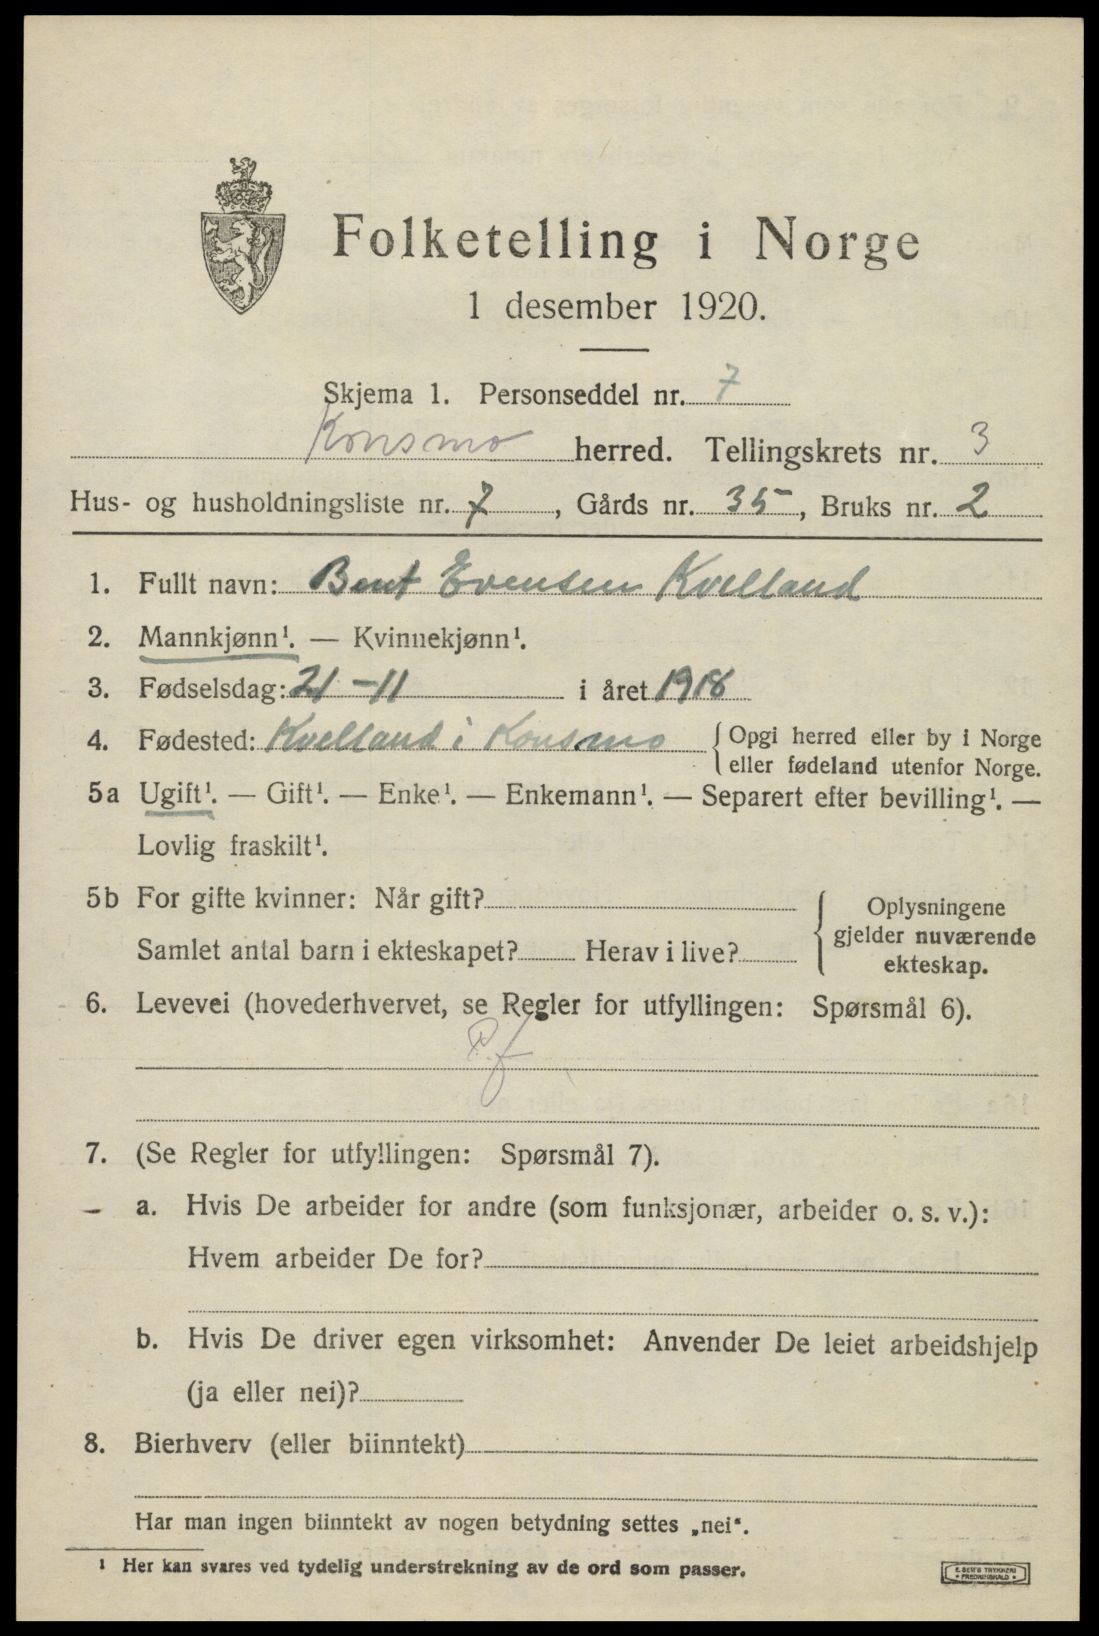 Folketelling i Norge
1 desember 1920.
Skjema 1. Personseddel nr. 7
Konsmo herred. Tellingskrets nr. 3
Hus- og husholdningsliste nr. 7, Gårds nr. 35, Bruks nr. 2
1. Fullt navn: Bent Evensen Kvelland
2. Mannkjønn¹. — Kvinnekjønn¹.
3. Fødselsdag: 21-11 i året 1918
4. Fødested: Kvelland i Konsmo { Opgi herred eller by i Norge
eller fødeland utenfor Norge.
5a Ugift¹. — Gift¹. — Enke¹. — Enkemann¹. — Separert efter bevilling¹. —
Lovlig fraskilt¹.
5b For gifte kvinner: Når gift?
Samlet antal barn i ekteskapet? Herav i live?
Oplysningene
gjelder nuværende
ekteskap.
6. Levevei (hovederhvervet, se Regler for utfyllingen: Spørsmål 6).
P.f
7. (Se Regler for utfyllingen: Spørsmål 7).
a. Hvis De arbeider for andre (som funksjonær, arbeider o. s. v.):
Hvem arbeider De for?
b. Hvis De driver egen virksomhet: Anvender De leiet arbeidshjelp
(ja eller nei)?
8. Bierhverv (eller biinntekt)
Har man ingen biinntekt av nogen betydning settes „nei“.
¹ Her kan svares ved tydelig understrekning av de ord som passer.
E. SEM'S TRYKKERI
• FREDRIKSHALD •